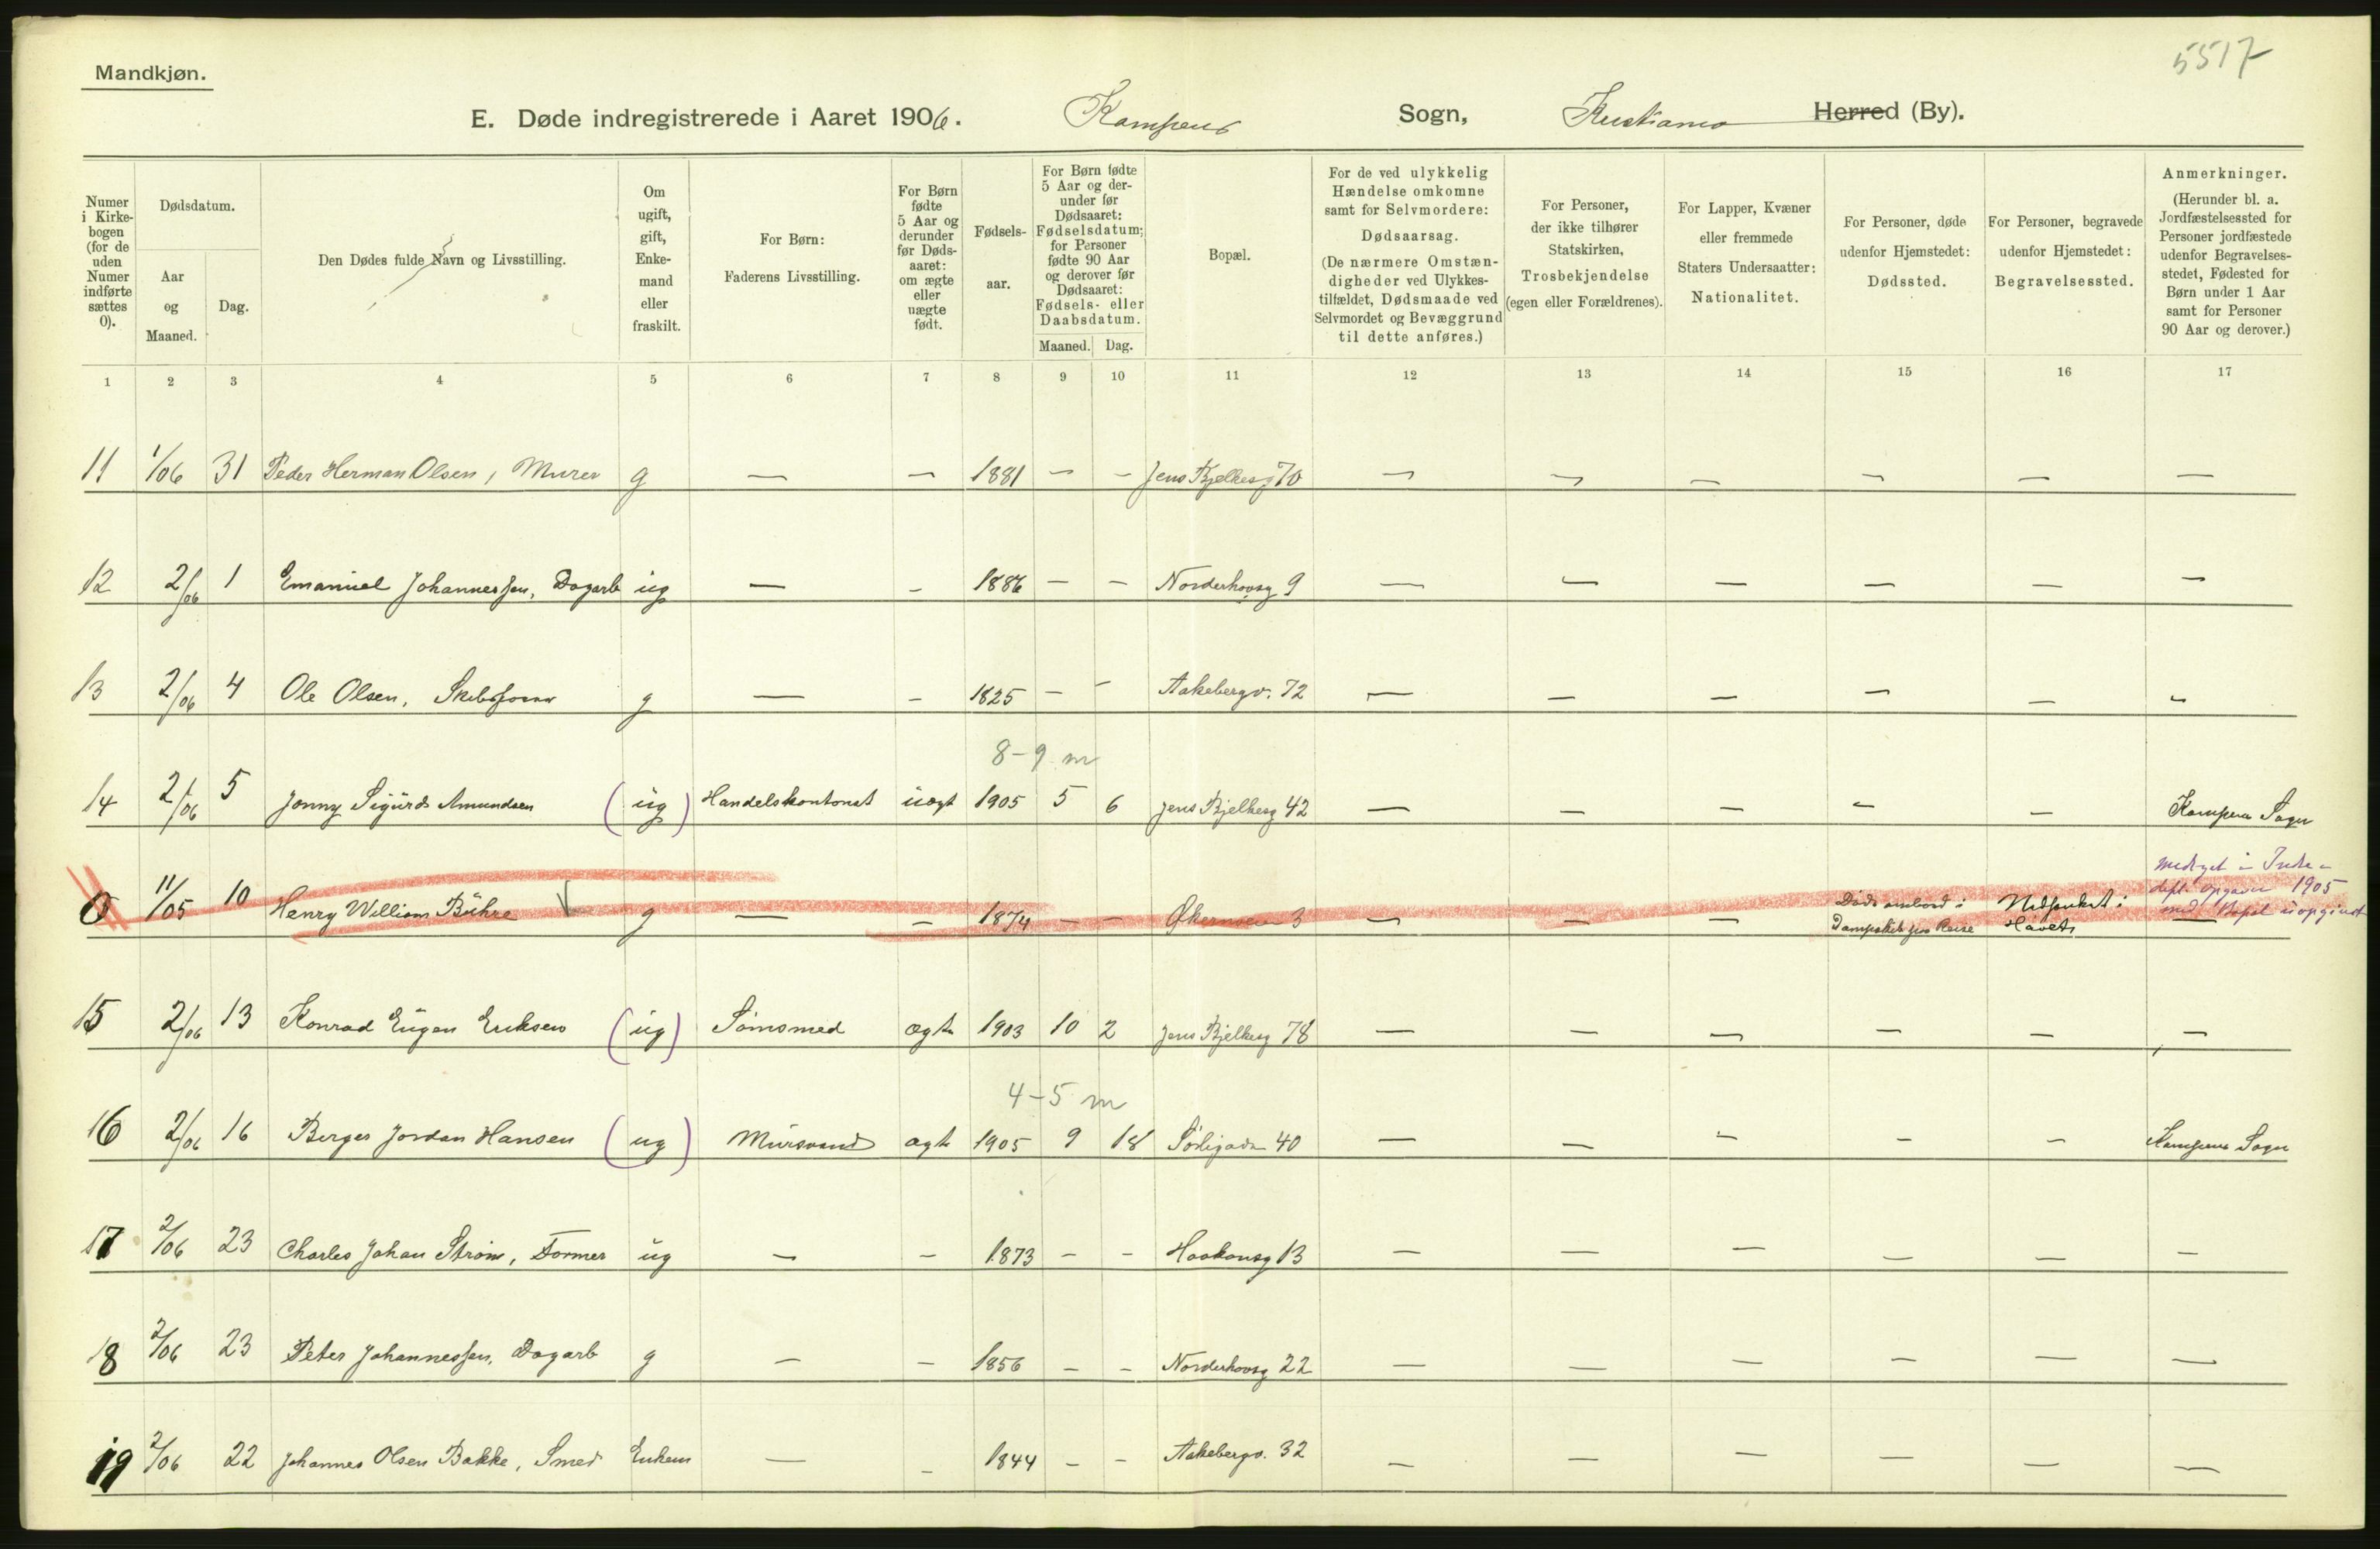 5517
Mandkjøn.
E. Døde indregistrerede i Aaret 1906. Kampens Sogn, Kristiania Herred (By).
Numer i Kirkebogen (for de uden Numer indførte sættes 0).
Dødsdatum.
Aar og Maaned.
Dag.
Den Dødes fulde Navn og Livsstilling.
Om ugift, gift, Enkemand eller fraskilt.
For Børn: Faderens Livsstilling.
For Børn fødte 5 Aar og derunder før Dødsaaret: om ægte eller uægte født.
Fødselsaar.
For Børn fødte 5 Aar og derunder før Dødsaaret: Fødselsdatum; for Personer fødte 90 Aar og derover før Dødsaaret: Fødsels- eller Daabsdatum.
Maaned. Dag.
Bopæl.
For de ved ulykkelig Hændelse omkomne samt for Selvmordere: Dødsaarsag. (De nærmere Omstændigheder ved Ulykkestilfældet, Dødsmaade ved Selvmordet og Bevæggrund til dette anføres.)
For Personer, der ikke tilhører Statskirken, Trosbekjendelse (egen eller Forældrenes).
For Lapper, Kvæner eller fremmede Staters Undersaatter: Nationalitet.
For Personer, døde udenfor Hjemstedet: Dødssted.
For Personer, begravede udenfor Hjemstedet: Begravelsessted.
Anmerkninger. (Herunder bl. a. Jordfæstelsessted for Personer jordfæstede udenfor Begravelsesstedet, Fødested for Børn under 1 Aar samt for Personer 90 Aar og derover.)
1 2 3 4 5 6 7 8 9 10 11 12 13 14 15 16 17
11 1/06 31 Peder Herman Olsen, Murer g — — 1881 — — Jens Bjelkesg 70 — — — — — —
12 2/06 1 Emanuel Johannessen, Dagarb ug — — 1886 — — Norderhovsg 9 — — — — — —
13 2/06 4 Ole Olsen, g — — 1825 — — Aakebergv. 72 — — — — — —
8-9 m
14 2/06 5 Jonny Sigurd Amundsen (ug) Handelskontorist uægt 1905 5 6 Jens Bjelkesg 42 — — — — — Kampens Sogn
0 11/05 10 Henry William Bühre g — — 1874 — — Økernveien 3 — — — Død ombord i Dampskib paa Reise Nedsænket i Havet — 1905 med Bopæl uopgivet
15 2/06 13 Konrad Eugen Eriksen (ug) Sømsmed ægte 1903 10 2 Jens Bjelkesg 78 — — — — — —
4-5 m
16 2/06 16 Birger Jordan Hansen (ug) Mursvend ægte 1905 9 18 Sørligaden 40 — — — — — Kampens Sogn
17 2/06 23 Charles Johan Strøm, Former ug — — 1873 — — Haakonsg 13 — — — — — —
18 2/06 23 Peter Johannessen, Dagarb g — — 1856 — — Norderhovsg 22 — — — — — —
19 2/06 22 Johannes Olsen Bakke, Smed Enkem — — 1844 — — Aakebergv. 32 — — — — — —